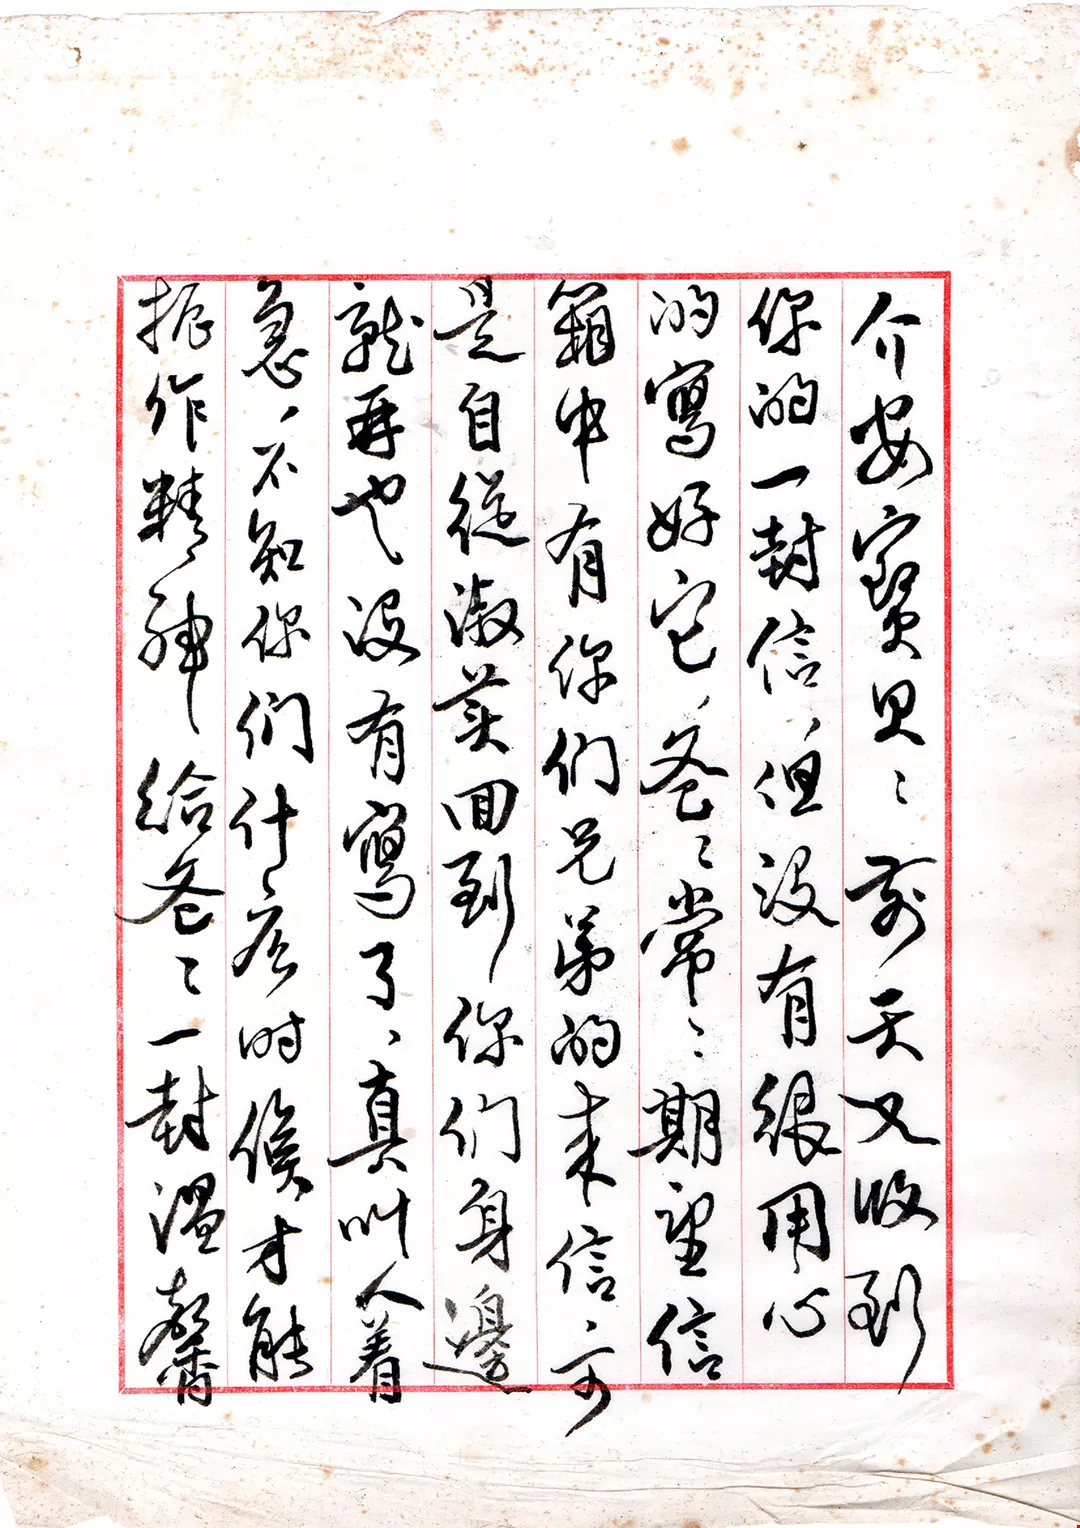 介安寶貝:前天又收到
你的一封信,但没有很用心
的寫好它,爸:常:期望信
箱中有你們兄弟的来信,可
是自從淑英回到你們身邊
就再也没有寫了,真叫人着
急,不知你們什麽時候才能
振作精神給爸:一封溫馨